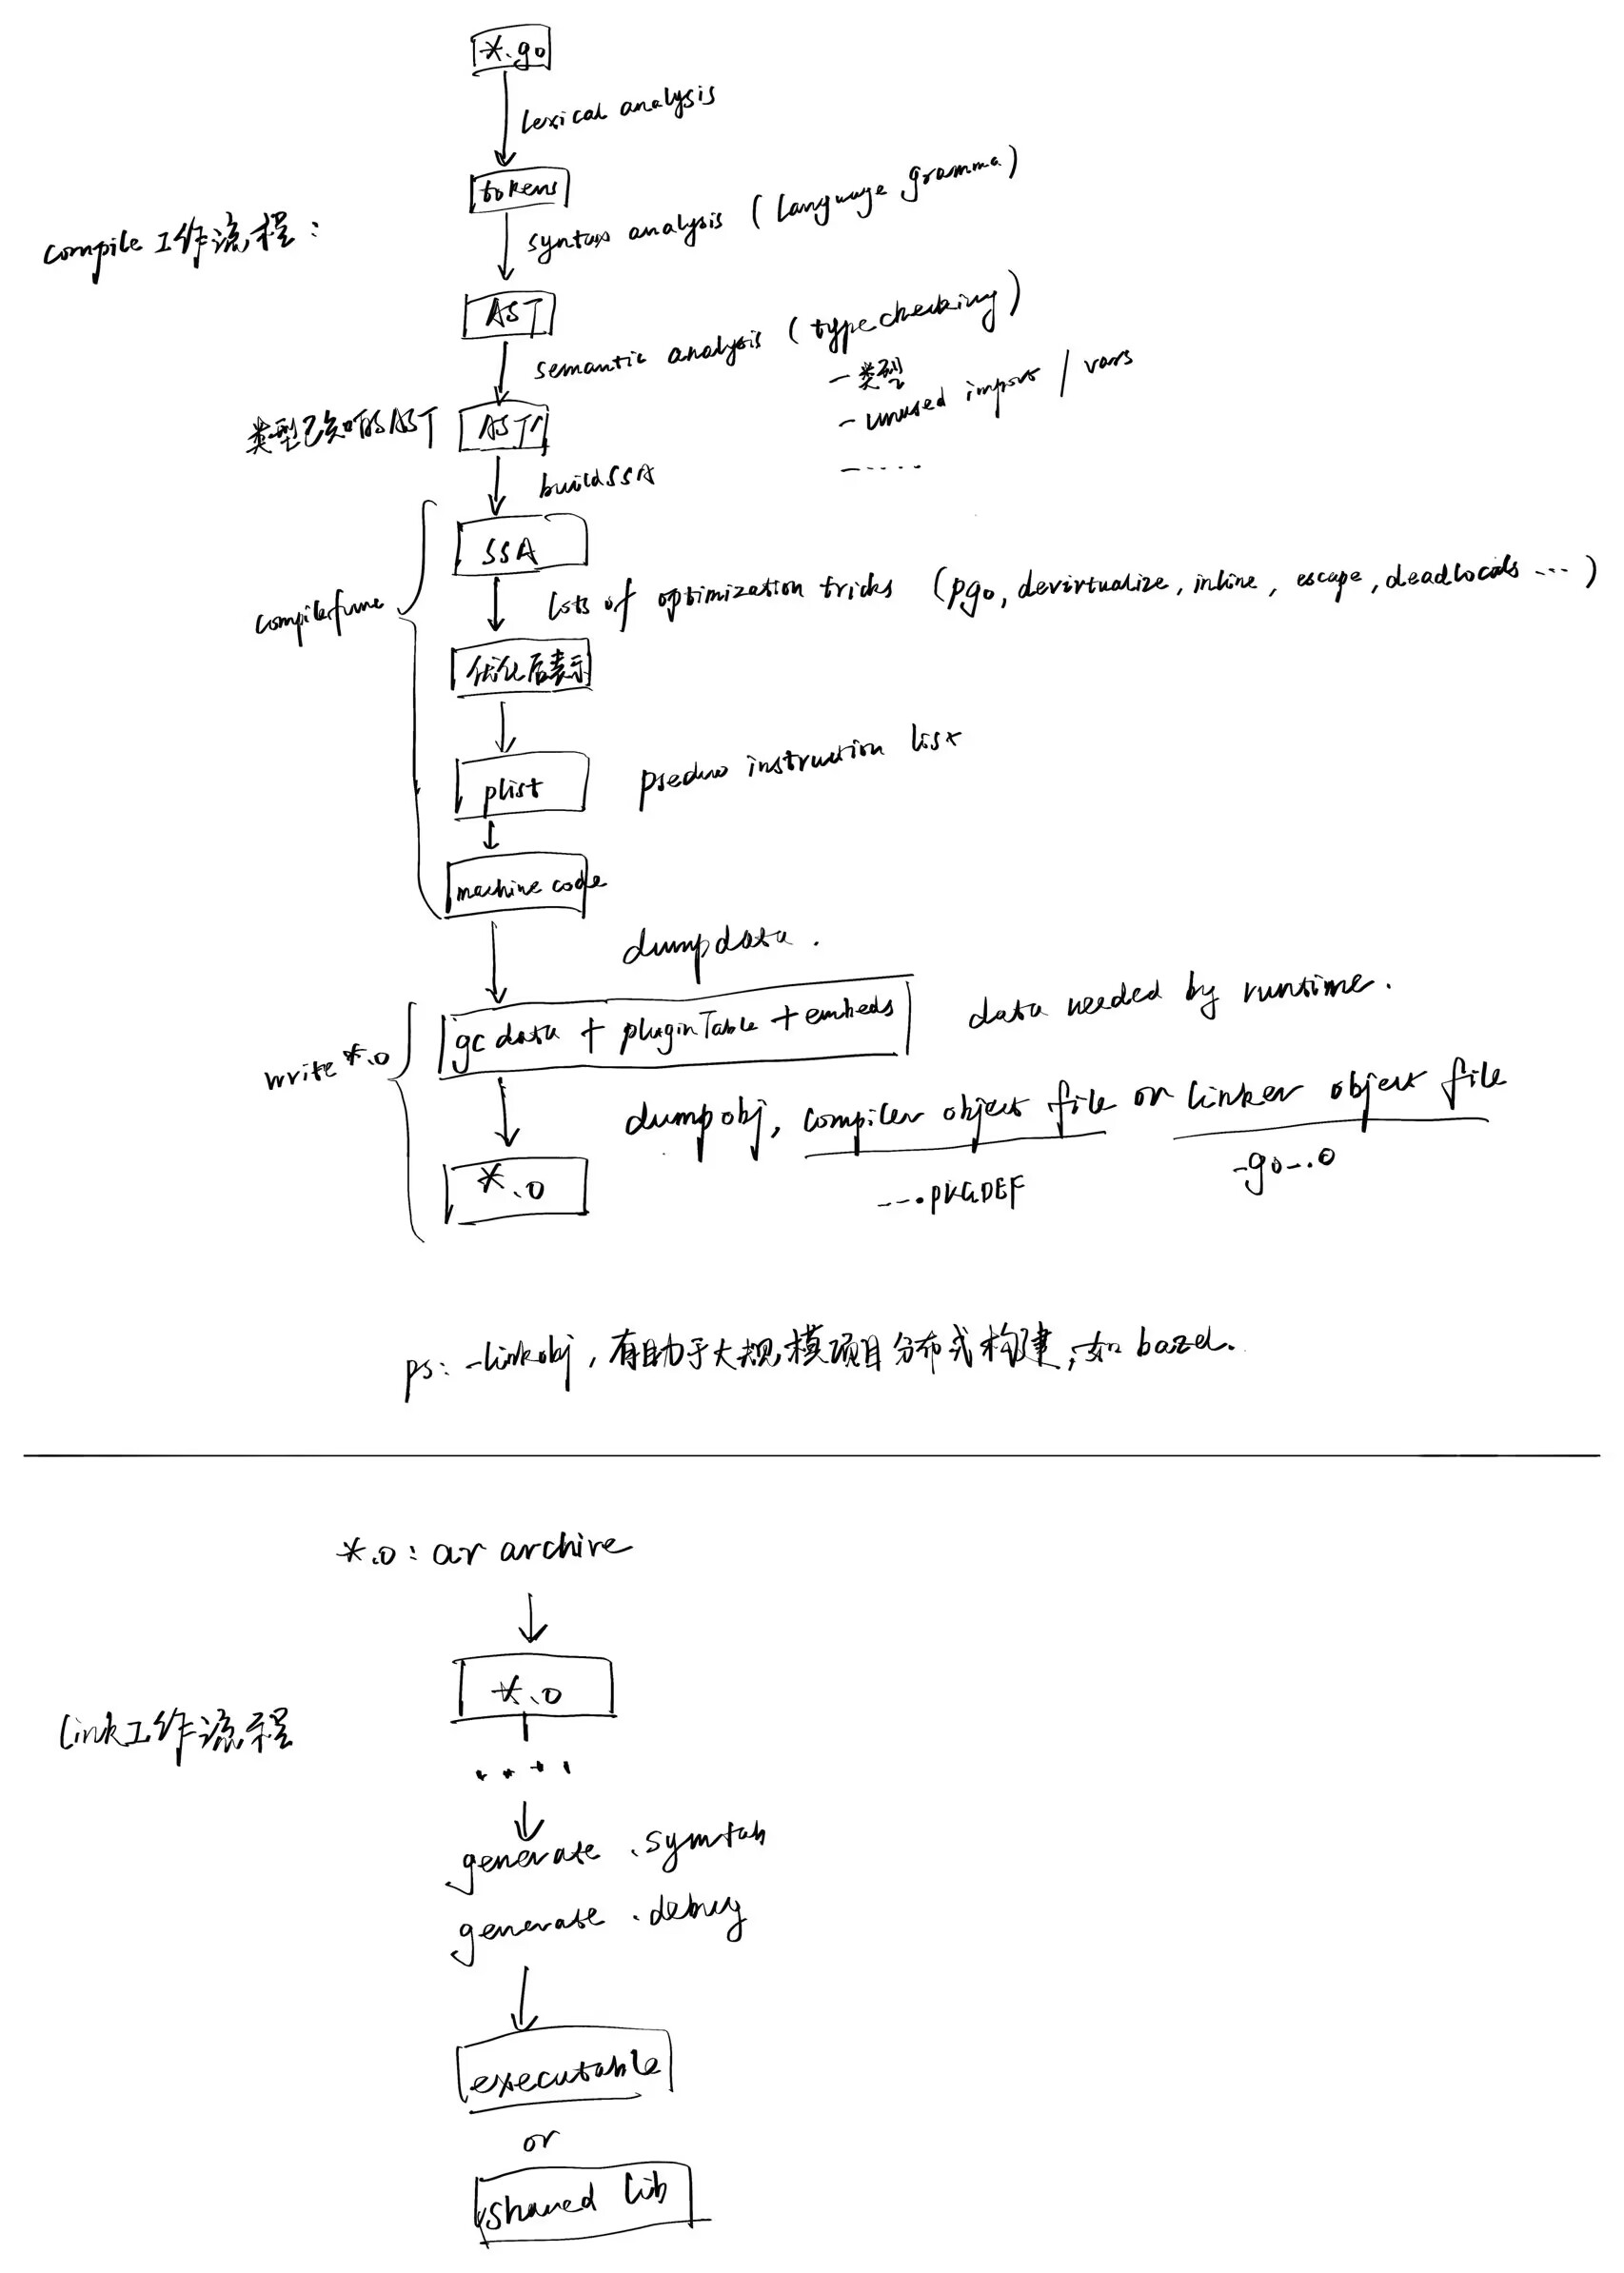 *.go
lexical analysis
tokens
compile 工作流程：
syntax analysis (language gramma)
AST
semantic analysis (typechecking)
- 类型
- unused import / vars
- ....
类型已知的AST
AST'
buildSSA
SSA
compilefunc
lots of optimization tricks (pgo, devirtualize, inline, escape, deadlocals ...)
优化后表示
plist
pseduo instruction list
machine code
dumpdata.
write *.o
gc data + pluginTable + embeds
data needed by runtime.
dumpobj, compiler object file or linker object file
*.o
---.PKGDEF
-go-.o
ps: -linkobj, 有助于大规模项目分布式构建, 如 bazel.
*.o: ar archive
*.o
link工作流程
....
generate .symtab
generate .debug
executable
or
shared lib